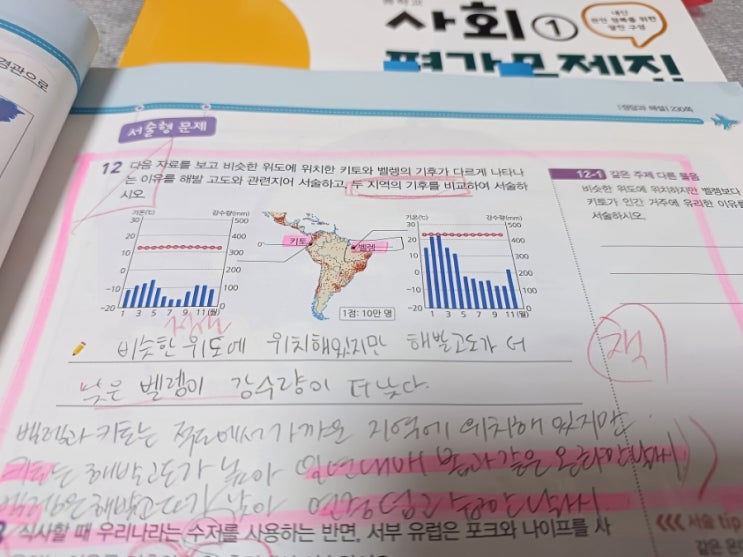 중학교
사회①
내신
완전 정복을 위한
알찬 구성
평가문제집
경관으로
[정답과 해설] 230쪽
서술형 문제
12 다음 자료를 보고 비슷한 위도에 위치한 키토와 벨렝의 기후가 다르게 나타나
는 이유를 해발 고도와 관련지어 서술하고, 두 지역의 기후를 비교하여 서술하
시오.
12-1 같은 주제 다른 물음
비슷한 위도에 위치하지만 벨렝보다
키토가 인간 거주에 유리한 이유를
서술하시오.
기온(℃) 강수량(mm)
30 500
20 400
10 300
0 200
-10 100
-20 0
1 3 5 7 9 11(월)
키토
벨렝
0°
1점: 10만 명
기온(℃) 강수량(mm)
30 500
20 400
10 300
0 200
-10 100
-20 0
1 3 5 7 9 11(월)
적도
비슷한 위도에 위치해있지만 해발고도가 더
낮은 벨렘이 강수량이 더 낮다.
잭
벨렘과 키토는 적도에서 가까운 지역에 위치해 있지만
키토는 해발고도가 높아 일년내내 봄과 같은 온화한 날씨
벨렘은 해발고도가 낮아 연중 덥고 습한 날씨.
식사할 때 우리나라는 수저를 사용하는 반면, 서부 유럽은 포크와 나이프를 사
서술 tip
같은 유